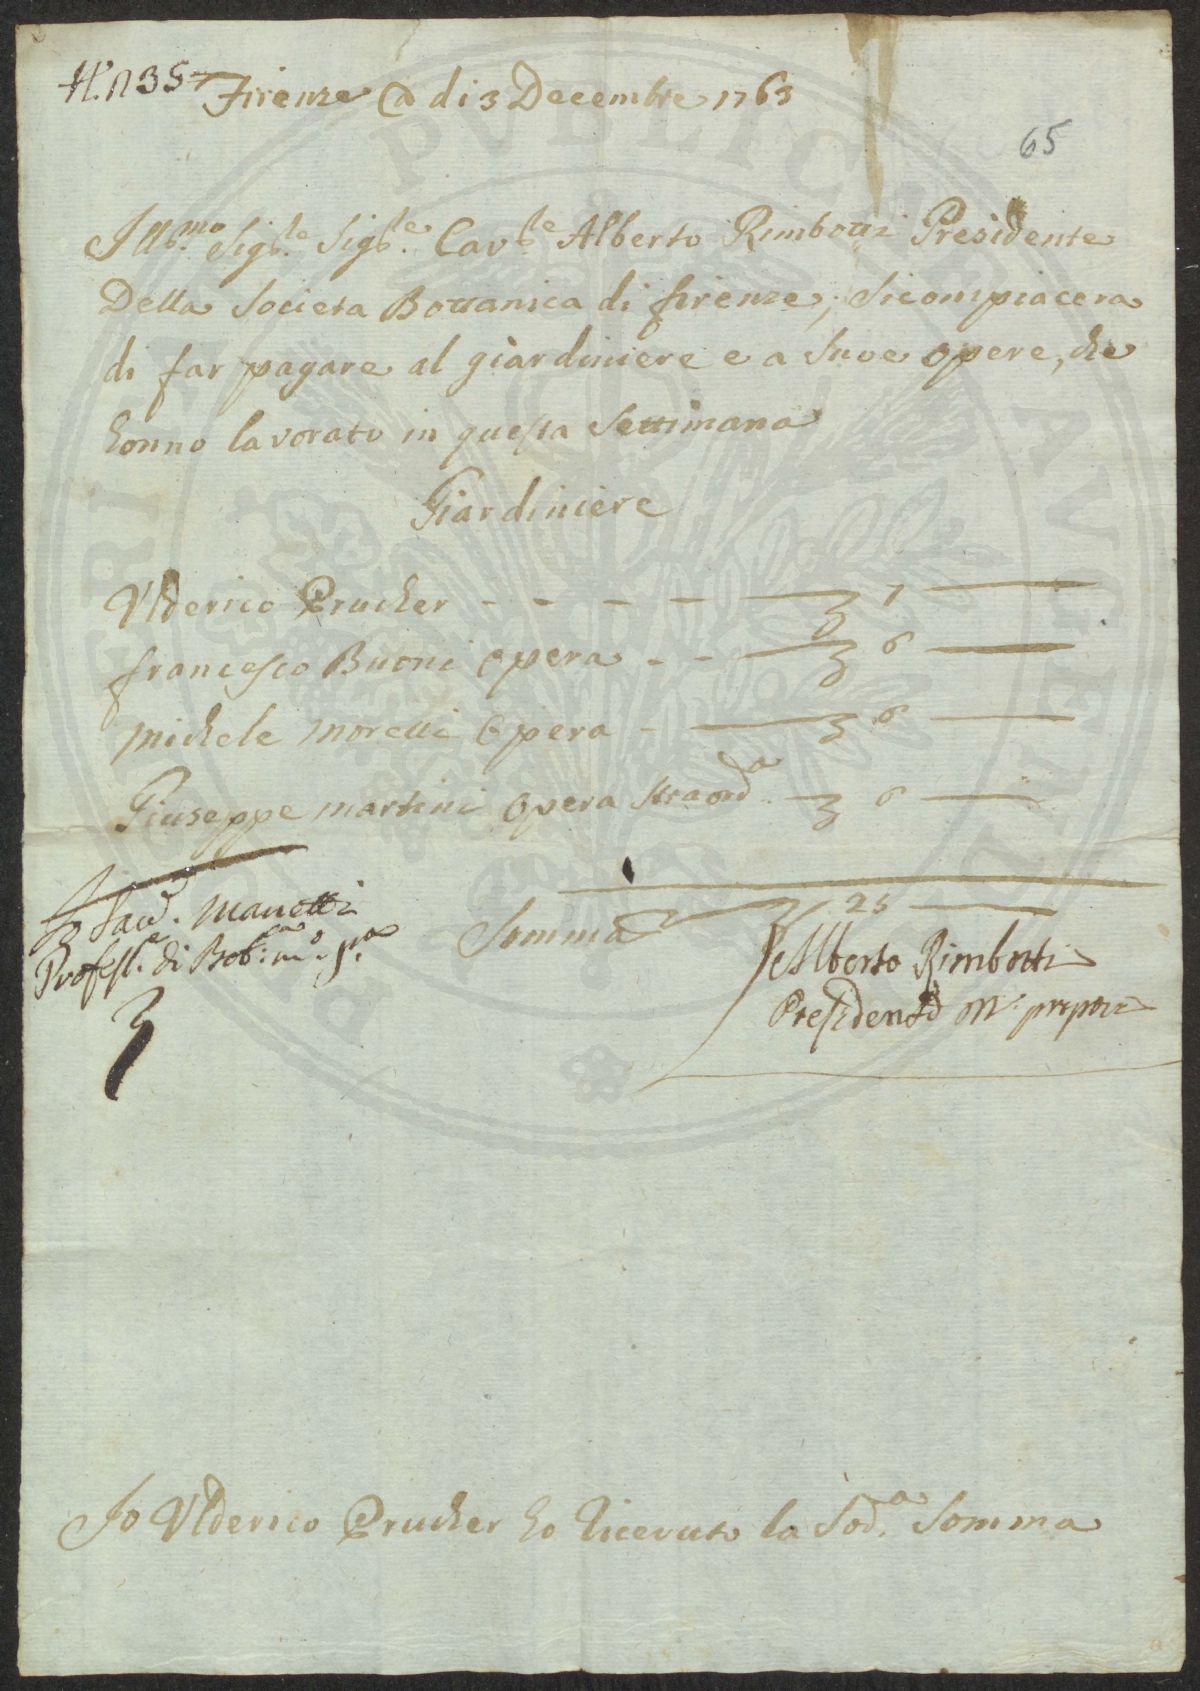 N.º 35
Firenze A di 3 Decembre 1763
65
Ill.mo Sig.re Sig.re Cav.re Alberto Rimbotti Presidente
Della Societa Bottanica di firenze, si compiacera
di far pagare al giardiniere e a Suoe Opere, che
hanno lavorato in questa Settimana
Giardiniere
Ulderico Prucker - - - - 7
francesco Buoni Opera - - 6
michele moretti Opera - 6
Giuseppe martini Opera straord.a 6
Somma 25
Saud. Manetti
Profess.e di Bot.ca m.o p.a
Alberto Rimbotti
Presidente M. propria
Io Ulderico Prucker ho ricevuto la Sod.a Somma
PVBLICAE AVCTVRI